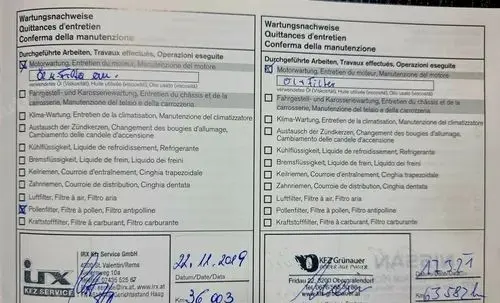 Wartungsnachweise
Quittances d'entretien
Conferma della manutenzione
Durchgeführte Arbeiten, Travaux effectués, Operazioni eseguite
Motorwartung, Entretien du moteur, Manutenzione del motore
verwendetes Öl (Viskosität), Huile utilisée (viscosité), Olio usato (viscosità)
Fahrgestell- und Karosseriewartung, Entretien du châssis et de la carrosserie, Manutenzione del telaio e della carrozzeria
Klima-Wartung, Entretien de la climatisation, Manutenzione del climatizzatore
Austausch der Zündkerzen, Changement des bougies d'allumage,
Cambiamento delle candele d'accensione
Kühlflüssigkeit, Liquide de refroidissement, Refrigerante
Bremsflüssigkeit, Liquide de frein, Liquido dei freini
Keilriemen, Courroie d'entraînement, Cinghia trapezoidale
Zahnriemen, Courroie de distribution, Cinghia dentata
Luftfilter, Filtre à air, Filtro aria
Pollenfilter, Filtre à pollen, Filtro antipolline
Kraftstofffilter, Filtre à carburant, Filtro carburante
irx
KFZ SERVICE
IRX Kfz Service GmbH
22.11.2019
Datum/Date/Data
Km
36 003
Wartungsnachweise
Quittances d'entretien
Conferma della manutenzione
Durchgeführte Arbeiten, Travaux effectués, Operazioni eseguite
Motorwartung, Entretien du moteur, Manutenzione del motore
Öl + Filter
verwendetes Öl (Viskosität), Huile utilisée (viscosité), Olio usato (viscosità)
Fahrgestell- und Karosseriewartung, Entretien du châssis et de la
carrosserie, Manutenzione del telaio e della carrozzeria
Klima-Wartung, Entretien de la climatisation, Manutenzione del climatizzatore
Austausch der Zündkerzen, Changement des bougies d'allumage,
Cambiamento delle candele d'accensione
Kühlflüssigkeit, Liquide de refroidissement, Refrigerante
Bremsflüssigkeit, Liquide de frein, Liquido dei freini
Keilriemen, Courroie d'entraînement, Cinghia trapezoidale
Zahnriemen, Courroie de distribution, Cinghia dentata
Luftfilter, Filtre à air, Filtro aria
Pollenfilter, Filtre à pollen, Filtro antipolline
Kraftstofffilter, Filtre à carburant, Filtro carburante
KFZ Grünauer
Fridau 22, 3200 Obergrafendorf